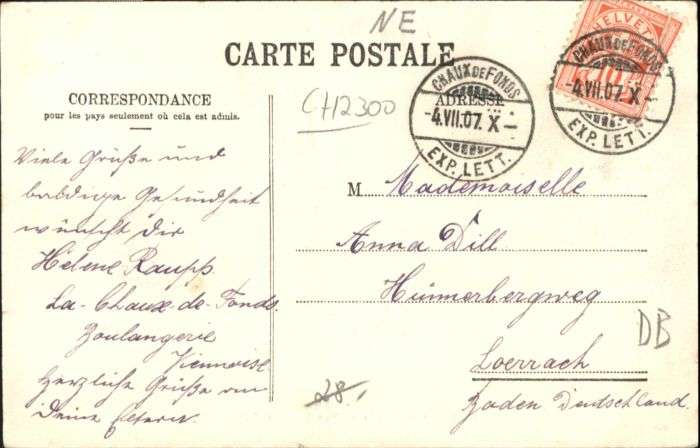 NE
CARTE POSTALE
CORRESPONDANCE
pour les pays seulement où cela est admis.
CH2300
ADRESSE
CHAUX DE FONDS
-4.VII.07. X-
EXP. LETT.
HELVETIA
10
CHAUX DE FONDS
-4.VII.07. X-
EXP. LETT.
Viele Grüße und
baldige Gesundheit
wünscht Dir
Hélène Raupp
La-Chaux-de-Fonds.
Boulangerie
Viennoise
Herzliche Grüße von
Deine Eltern.
M Mademoiselle
Anna Dill
Hünnerbergweg
Loerrach
Baden Deutschland.
DB
28.